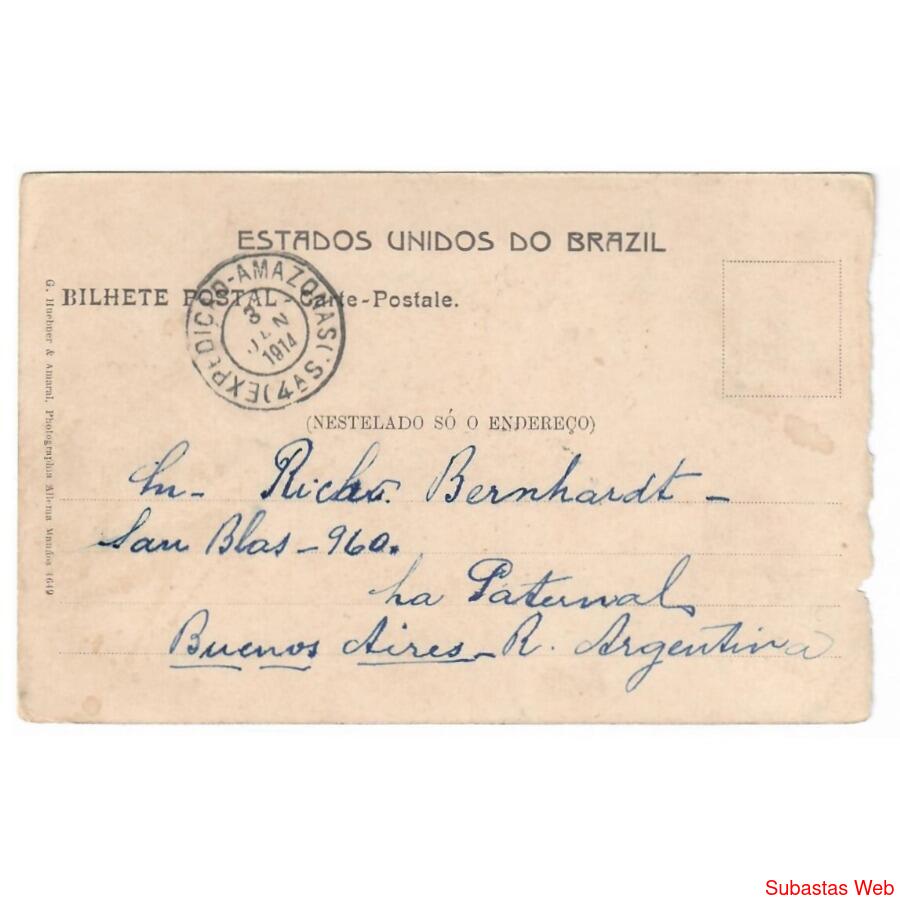 ESTADOS UNIDOS DO BRAZIL
BILHETE POSTAL - Carte-Postale.
EXPEDICÃO-AMAZONAS (4ª S.)
3 JAN 1914
(NESTELADO SÓ O ENDEREÇO)
Richard Bernhardt -
San Blas - 960.
La Paternal
Buenos Aires - R. Argentina
G. Huebner & Amaral, Photographia Allema Manáos 1649
Subastas Web